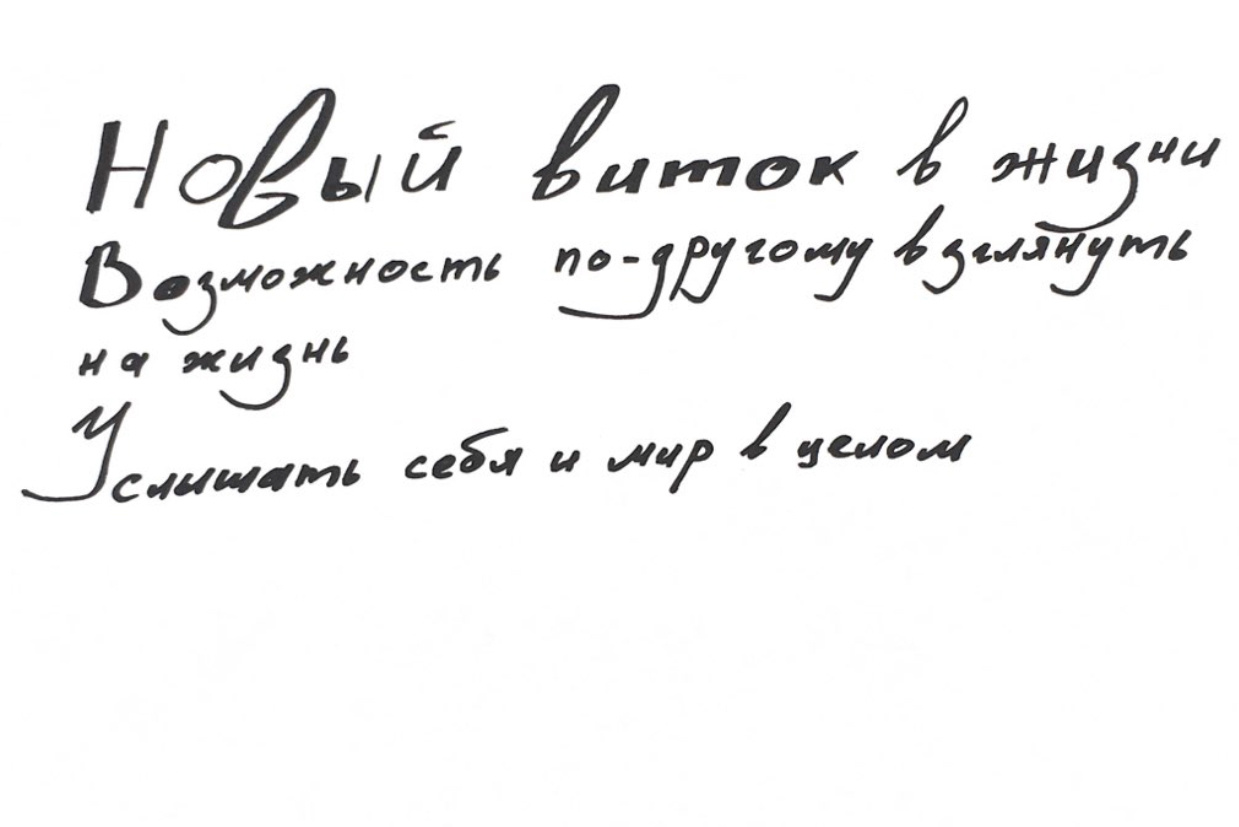 Новый виток в жизни
Возможность по-другому взглянуть
на жизнь
Услышать себя и мир в целом